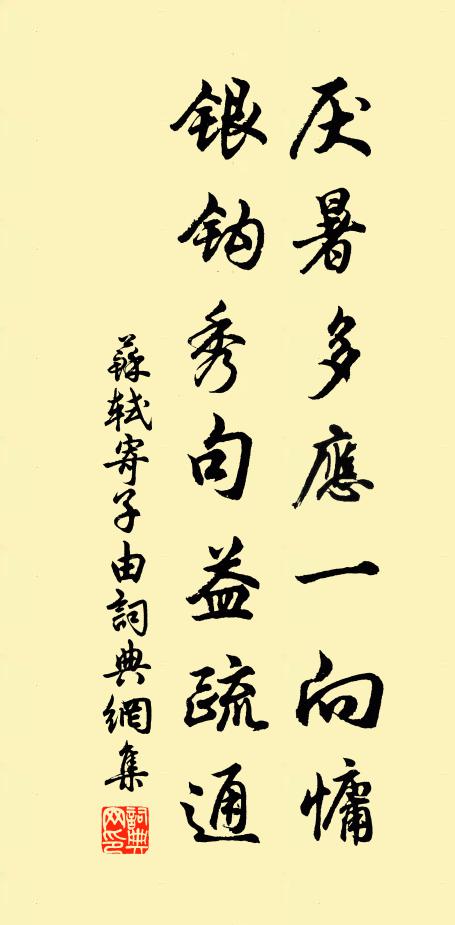 厌暑多應一向慵
銀鈎秀句益疏通
蘇軾寄子由詞典網集
詞典網印